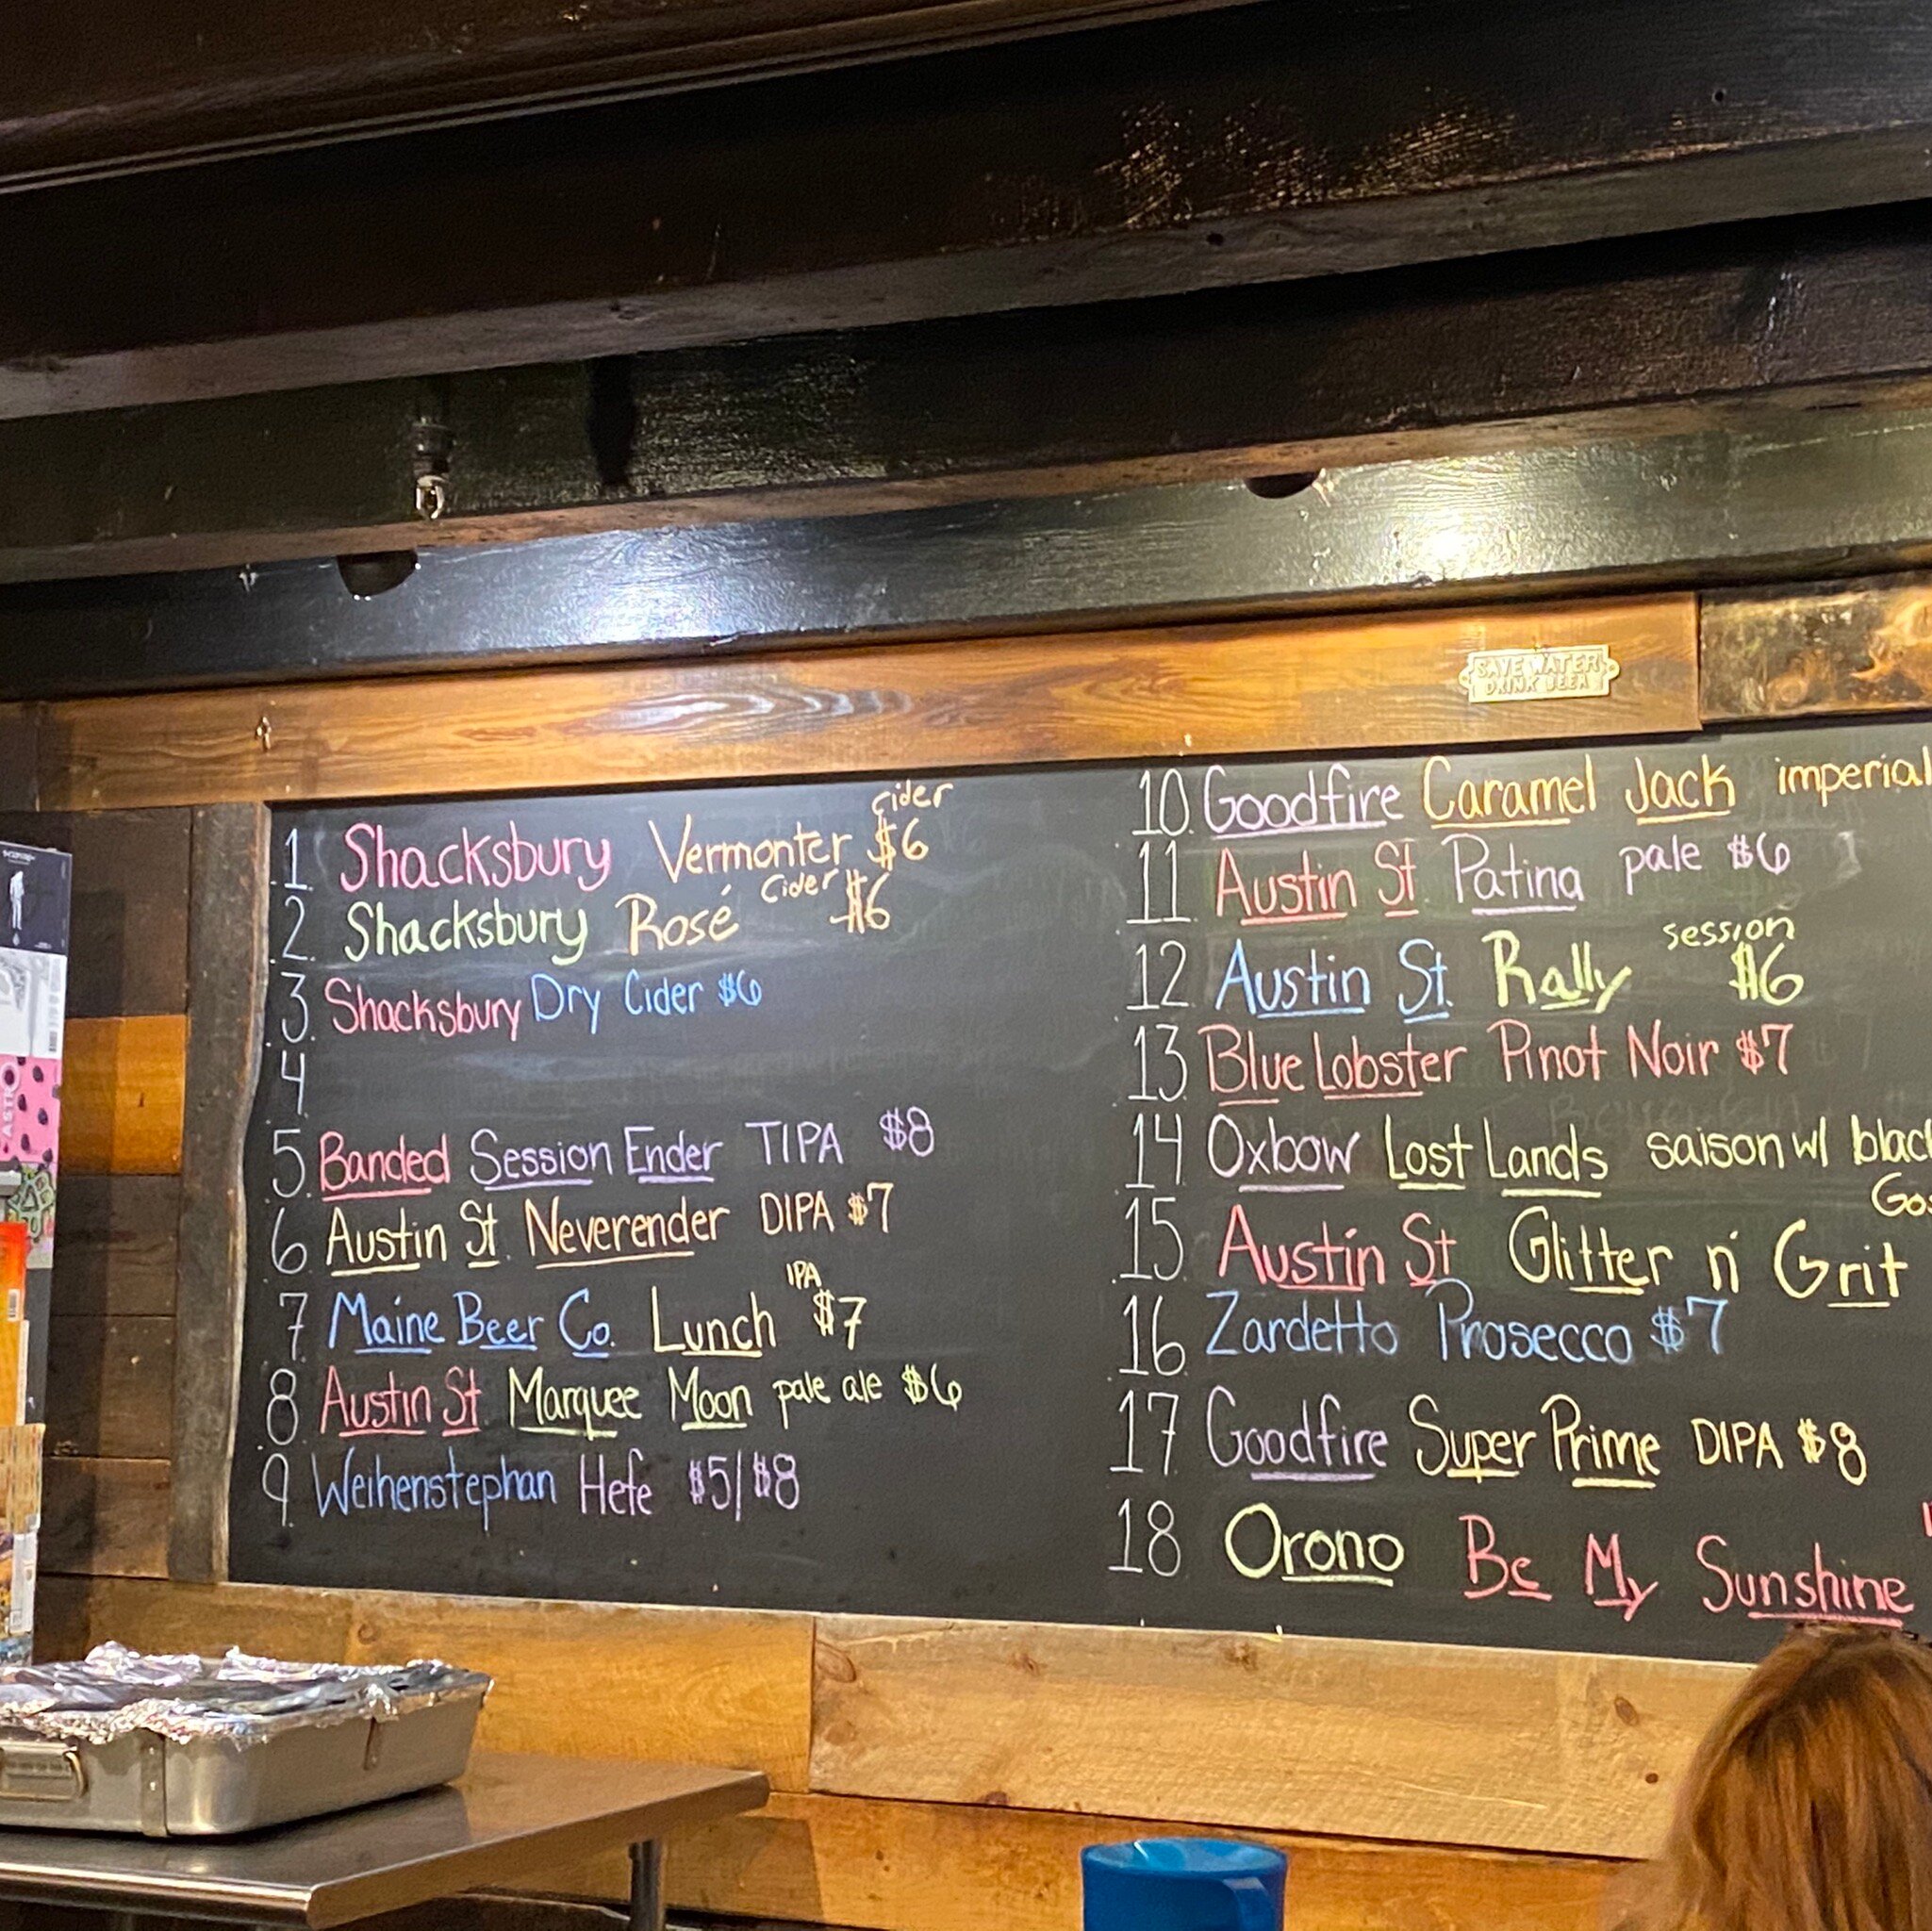 SAVE WATER
DRINK BEER
1. Shacksbury Vermonter cider $6
2. Shacksbury Rosé Cider $6
3. Shacksbury Dry Cider $6
4
5. Banded Session Ender TIPA $8
6. Austin St. Neverender DIPA $7
7. Maine Beer Co. Lunch IPA $7
8. Austin St. Marquee Moon pale ale $6
9. Weihenstephan Hefe $5/$8
10. Goodfire Caramel Jack imperial
11. Austin St. Patina pale $6
12. Austin St. Rally session $6
13. Blue Lobster Pinot Noir $7
14. Oxbow Lost Lands saison w/
15. Austin St Glitter n' Grit
16. Zardetto Prosecco $7
17. Goodfire Super Prime DIPA $8
18 Orono Be My Sunshine